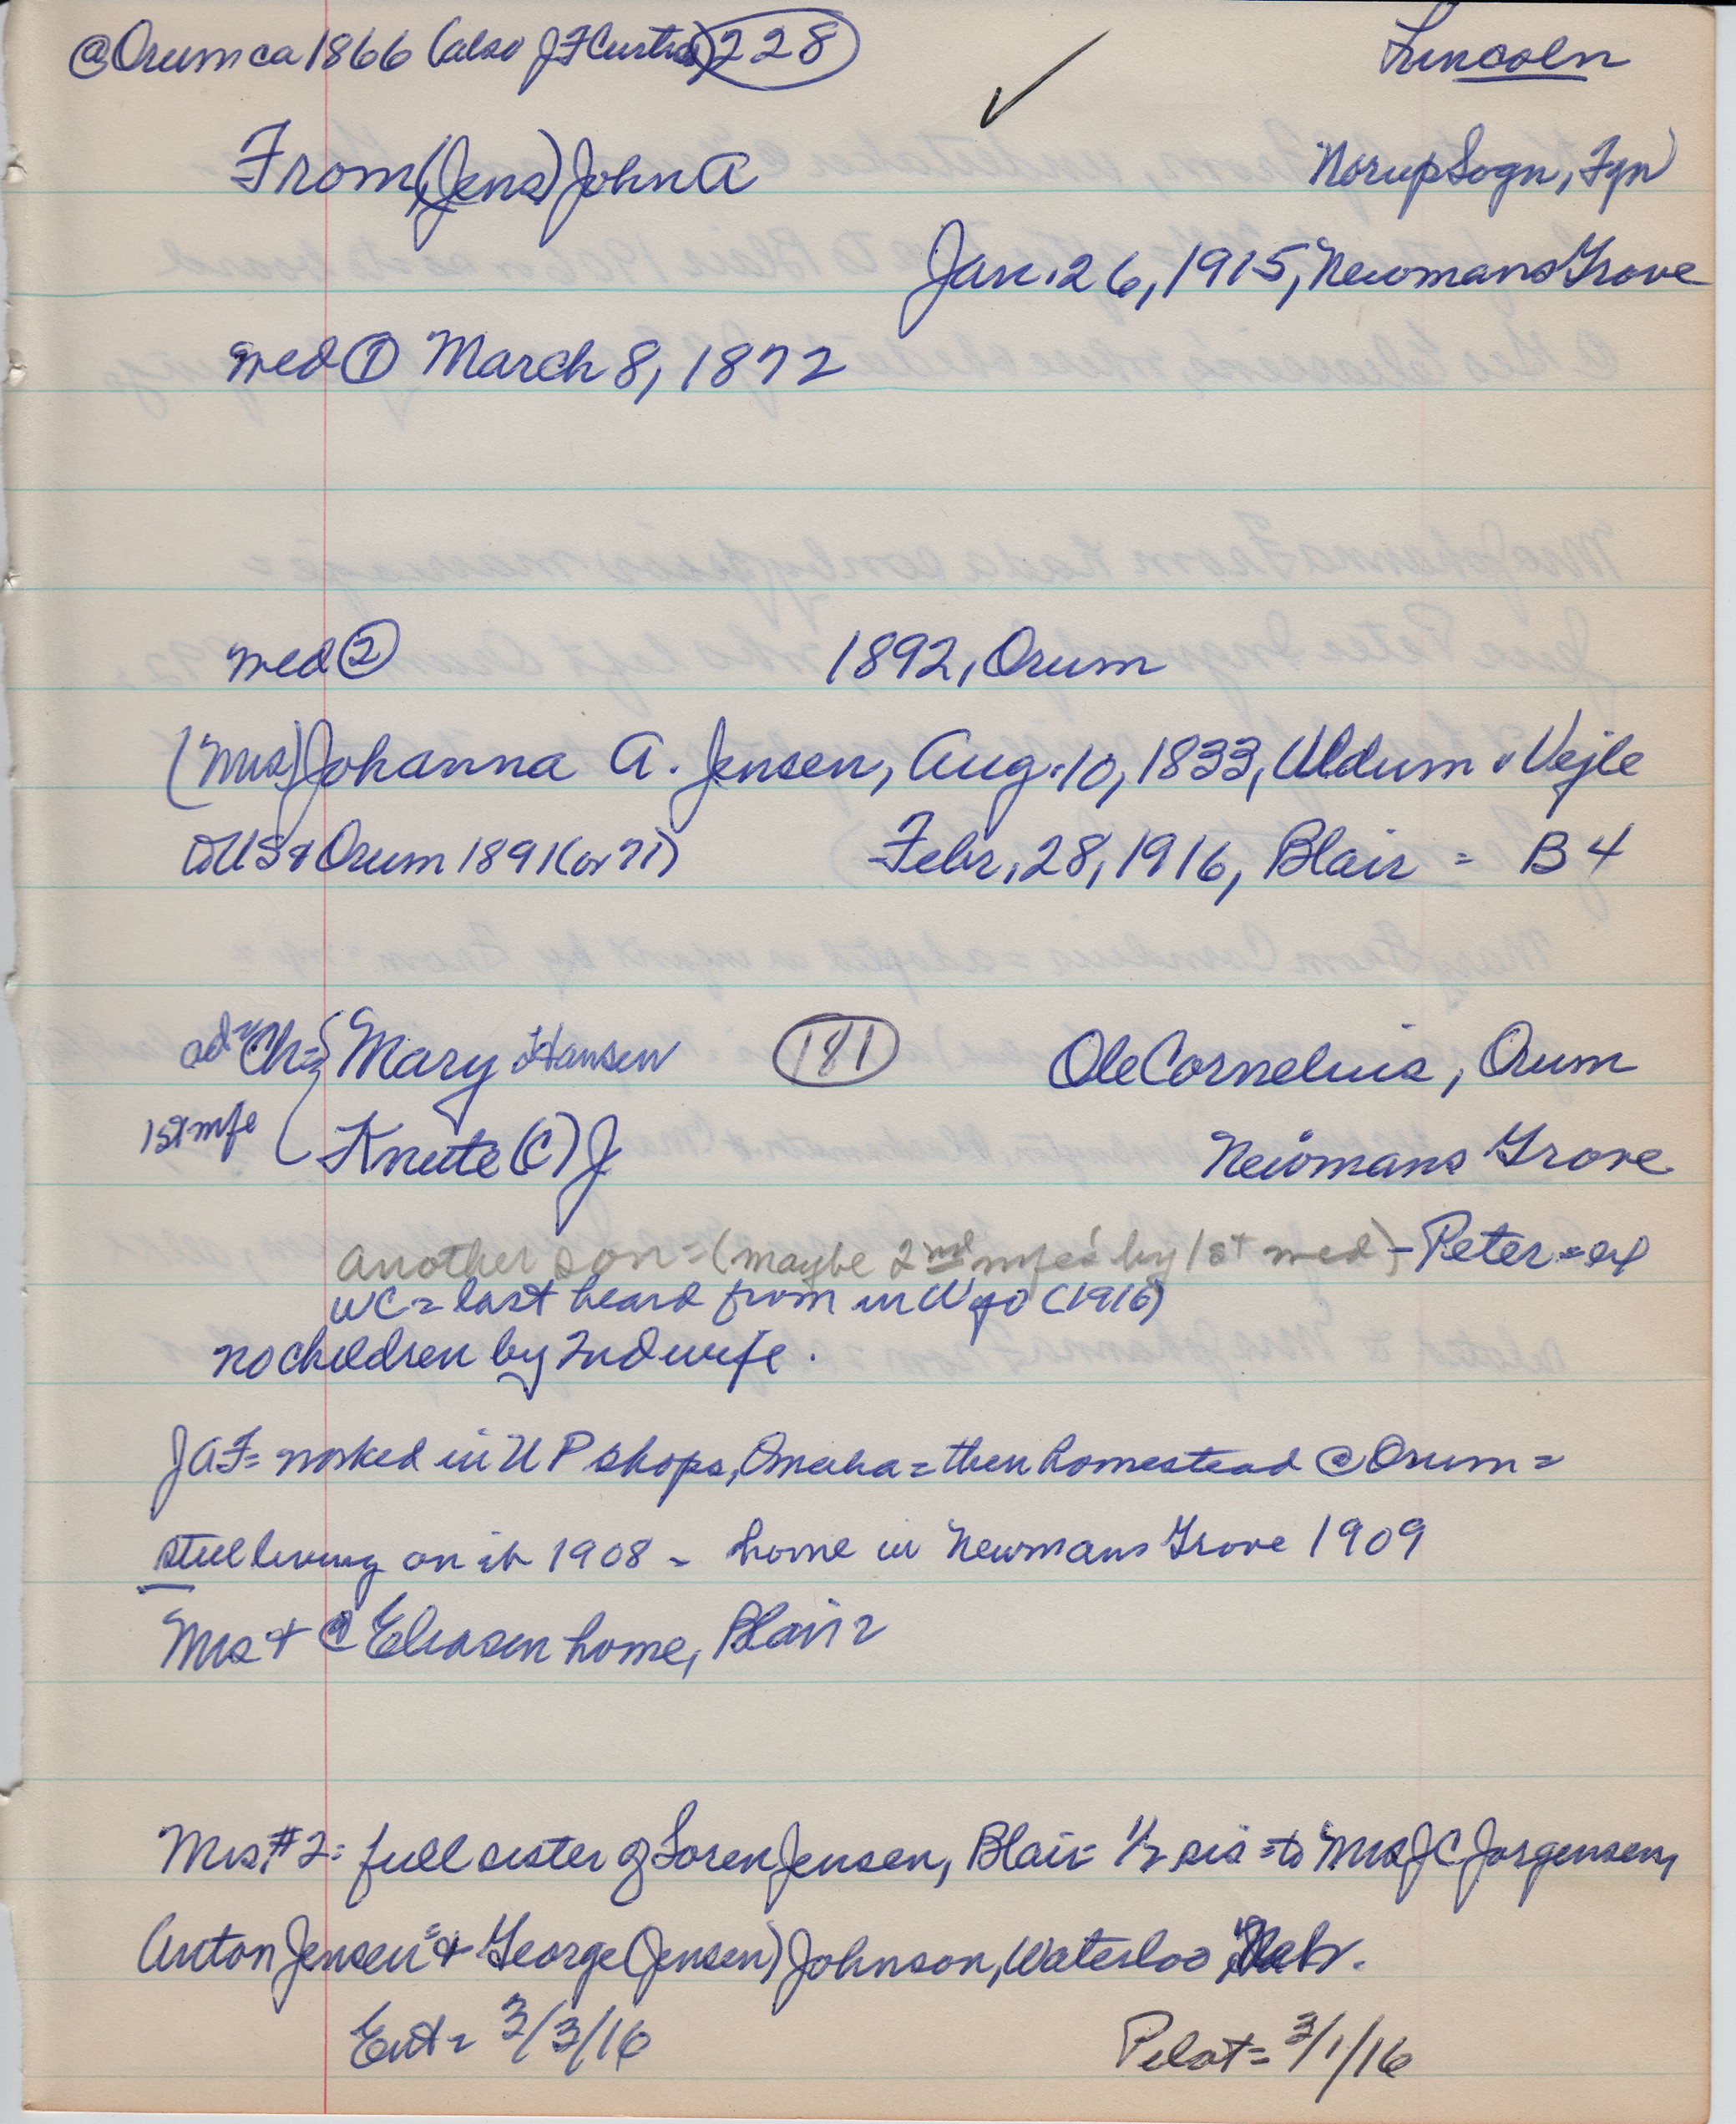 @ Orum ca 1866 (also J F Curtis) 228 Lincoln
From, (Jens) John A Norup Sogn, Fyn
Jan. 26, 1915, Newmans Grove
med ① March 8, 1872
med ② 1892, Orum
(Mrs) Johanna A. Jensen, Aug. 10, 1833, Uldum v Vejle
to US & Orum 1891 (or 71) Febr. 28, 1916, Blair = B4
ad = Ch = Mary Hansen 181 Ole Cornelius, Orum
1st mfe Knute (C) J Newmans Grove
another son = (maybe 2nd mfe's by 1st med) - Peter =
WC = last heard from in Wyo (1916)
no children by 2nd wife.
JAF = worked in U P shops, Omaha = then homestead @ Orum =
still living on it 1908 - home in Newmans Grove 1909
Mrs + @ Eliasen home, Blair =
Mrs #2 = full sister of Soren Jensen, Blair = 1/2 sis = to Mrs J C Jorgensen,
Anton Jensen = & George (Jensen) Johnson, Waterloo, Nebr.
Ent = 3/3/16 Pilot = 3/1/16